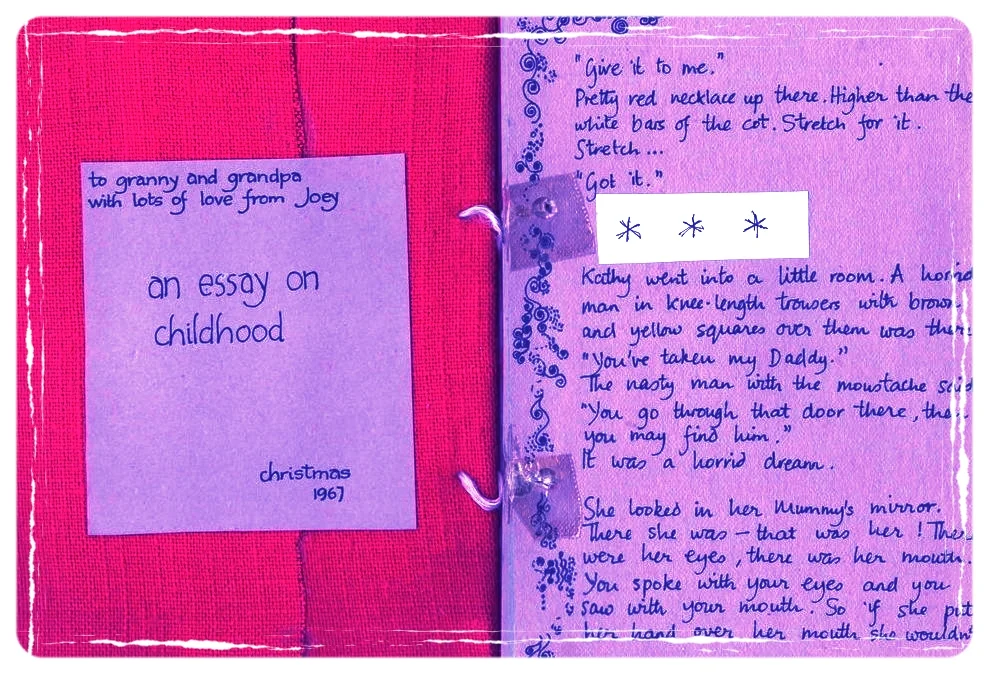 to granny and grandpa
with lots of love from Joey
an essay on
childhood
christmas
1967
"Give it to me."
Pretty red necklace up there. Higher than the
white bars of the cot. Stretch for it.
Stretch...
"Got it."
* * *
Kathy went into a little room. A horrid
man in knee-length trousers with brown
and yellow squares over them was there
"You've taken my Daddy."
The nasty man with the moustache said
"You go through that door there, then
you may find him."
It was a horrid dream.
She looked in her Mummy's mirror.
There she was – that was her! There
were her eyes, there was her mouth.
You spoke with your eyes and you
saw with your mouth. So if she put
her hand over her mouth she wouldn't